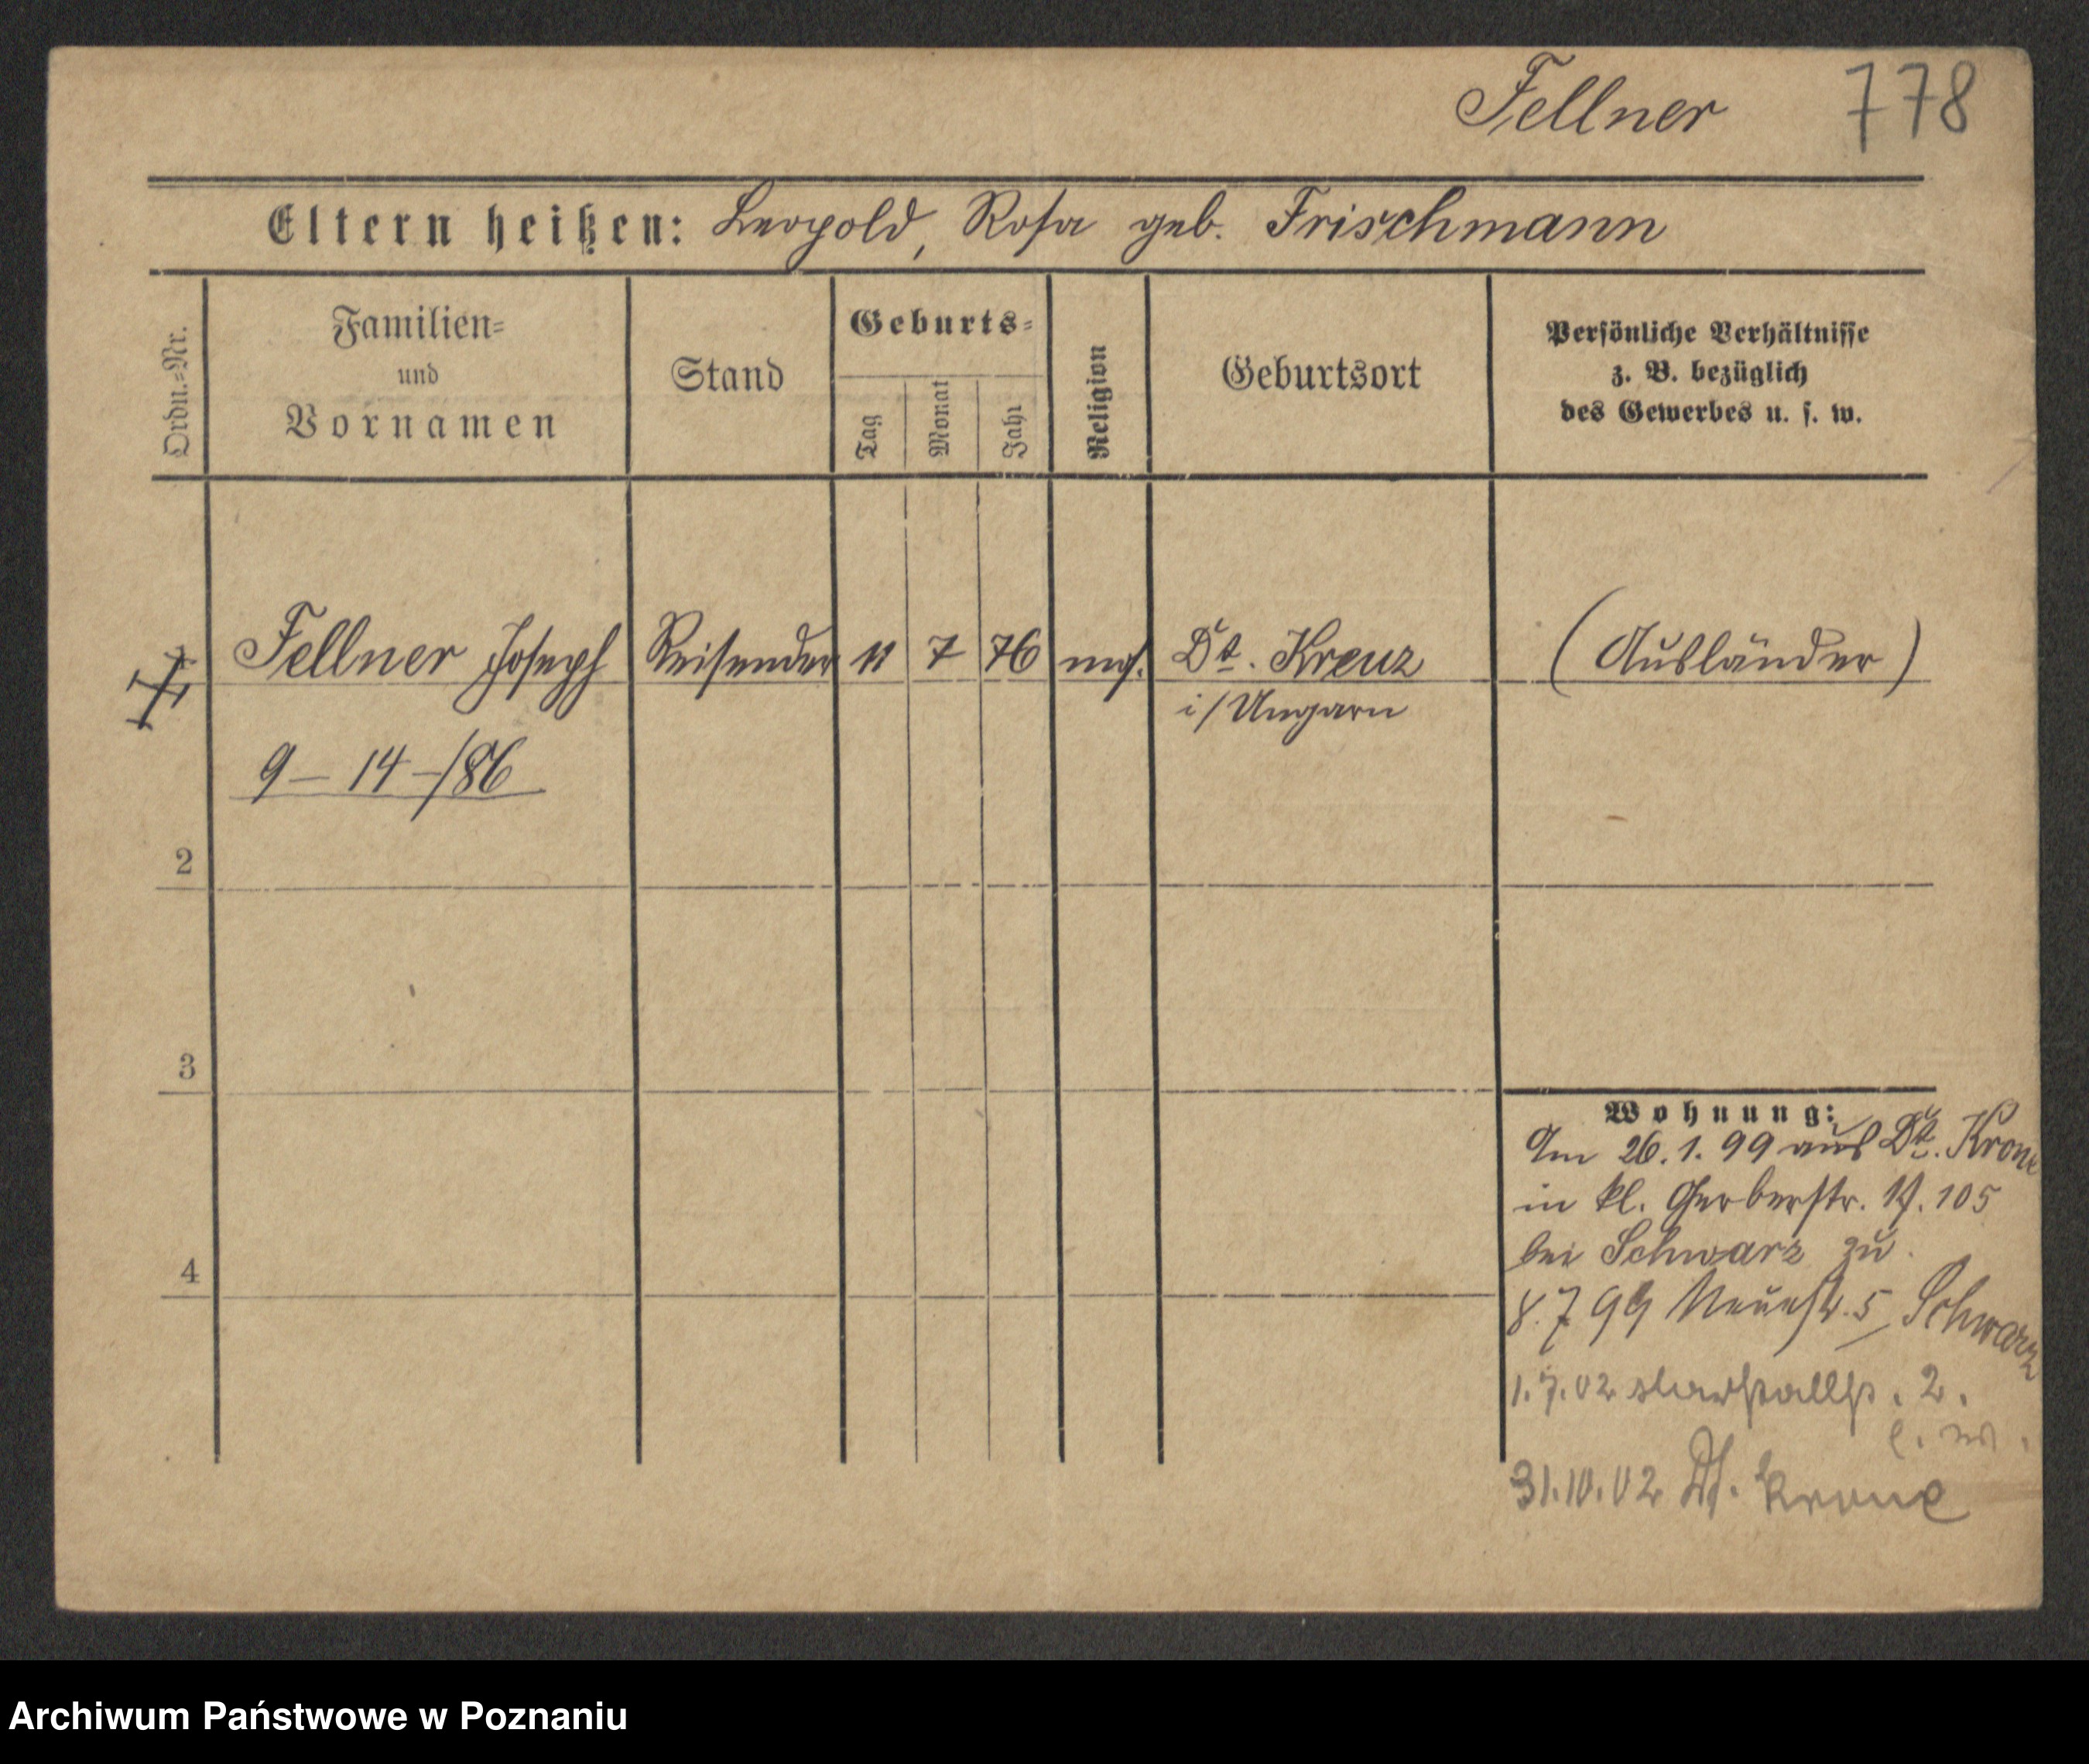 Fellner 778
Eltern heißen: Leopold, Rosa geb. Frischmann
Ordn.=Nr.
Familien=
und
Vornamen
Stand
Geburts=
Tag
Monat
Jahr
Religion
Geburtsort
Persönliche Verhältnisse
z. B. bezüglich
des Gewerbes u. s. w.
Fellner Joseph Reisender 11 7 76 mos. Dt. Kreuz (Ausländer)
i/Ungarn
9 – 14 –/86
2
3
4
Wohnung:
Am 26.1.99 aus Dt. Krone
in kl. Gerberstr. 105
bei Schwarz zu.
8.7.99 Neuestr. 5, Schwarz
1.7.02 2.
31.10.02 Dt. Krone
Archiwum Państwowe w Poznaniu